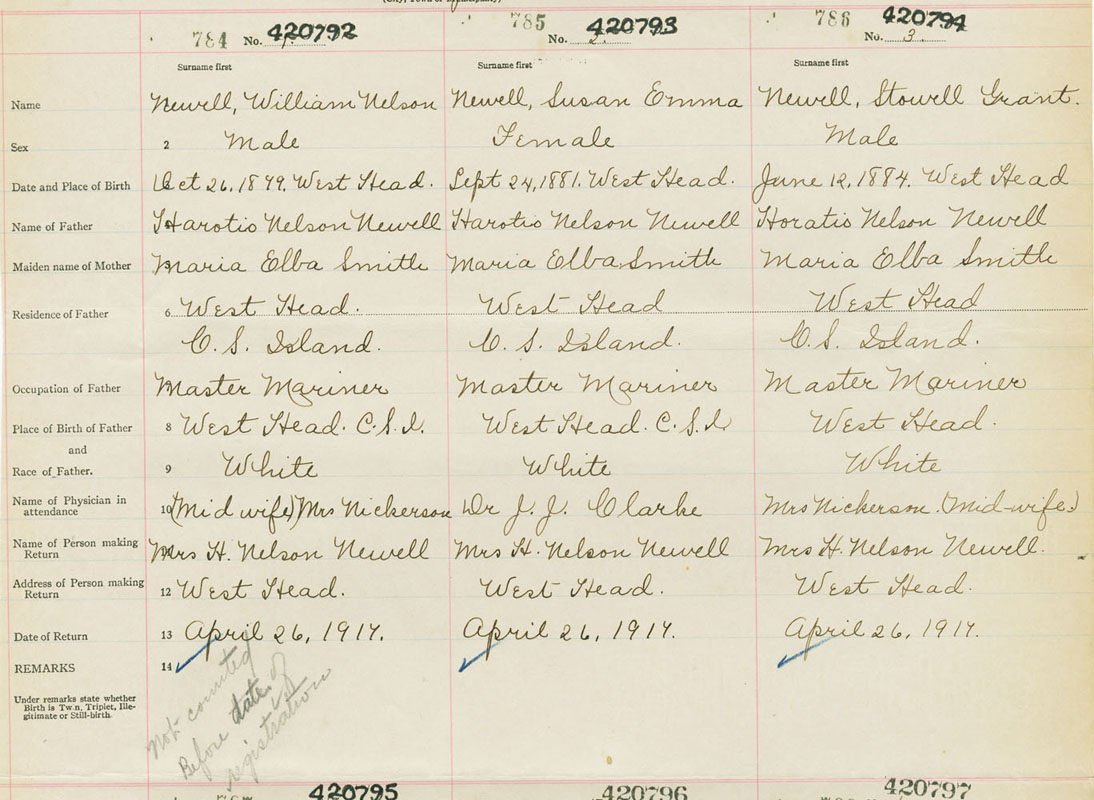 784 No. 1. 420792 785 No. 2. 420793 786 No. 3. 420794
Surname first Surname first Surname first
Name Newell, William Nelson Newell, Susan Emma Newell, Stowell Grant.
Sex 2 Male Female Male
Date and Place of Birth Oct 26, 1879. West Head. Sept 24, 1881. West Head. June 12, 1884. West Head
Name of Father Harotio Nelson Newell Harotio Nelson Newell Horatio Nelson Newell
Maiden name of Mother Maria Elba Smith Maria Elba Smith Maria Elba Smith
Residence of Father 6 West Head. West Head West Head
C. S. Island. C. S. Island. C. S. Island.
Occupation of Father Master Mariner Master Mariner Master Mariner
Place of Birth of Father 8 West Head. C. S. I. West Head. C. S. I. West Head.
and
Race of Father. 9 White White White
Name of Physician in attendance 10 (Mid wife) Mrs Nickerson Dr J. J. Clarke Mrs Nickerson. (Mid-wife.)
Name of Person making Return Mrs H. Nelson Newell Mrs H. Nelson Newell Mrs H. Nelson Newell.
Address of Person making Return 12 West Head. West Head. West Head.
Date of Return 13 April 26, 1917. April 26, 1917. April 26, 1917.
REMARKS 14
Under remarks state whether
Birth is Twin, Triplet, Ille-
gitimate or Still-birth.
Not counted
Before date of
registration
420795 420796 420797